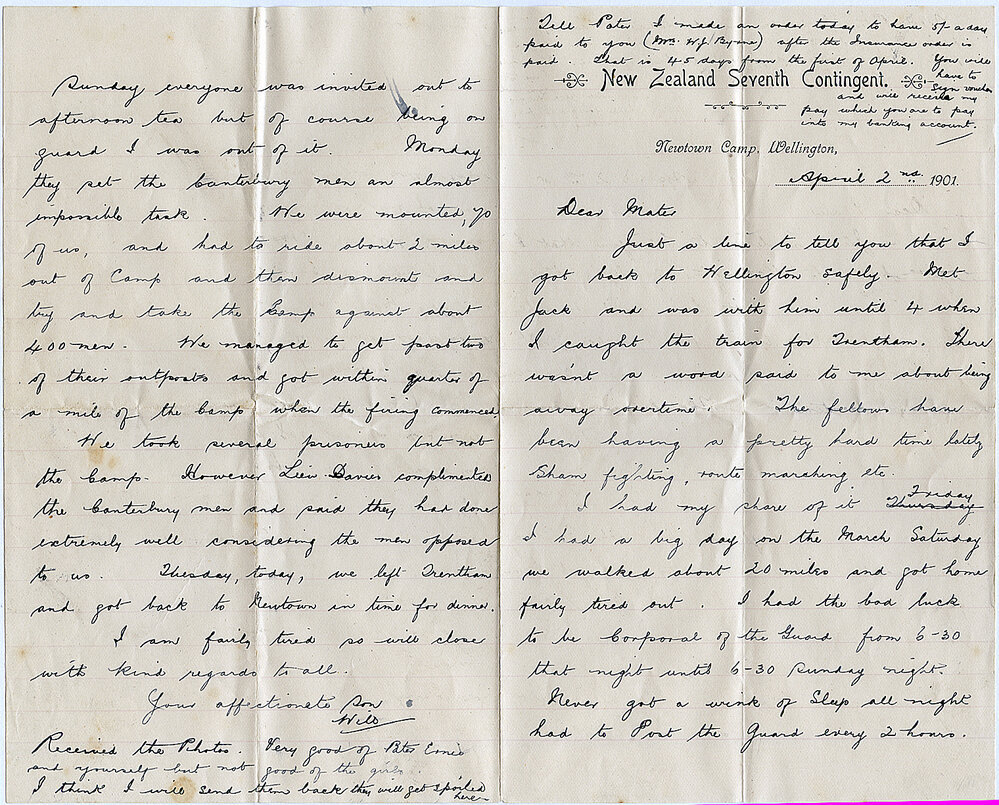 Tell Pater I made an order today to have 5/- a day
paid to you (Mrs. W.J. Byrne) after the Insurance order is
paid. That is 45 days from the first of April. You will
have to
sign voucher
and will receive my
pay which you are to pay
into my banking account.
New Zealand Seventh Contingent.
Newtown Camp, Wellington,
April 2nd 1901.
Dear Mater
Just a line to tell you that I
got back to Wellington safely. Met
Jack and was with him until 4 when
I caught the train for Trentham. There
wasn't a word said to me about being
away overtime. The fellows have
been having a pretty hard time lately
Sham fighting, route marching etc
I had my share of it Thursday Friday
I had a big day on the March Saturday
we walked about 20 miles and got home
fairly tired out. I had the bad luck
to be Corporal of the Guard from 6-30
that night until 6-30 Sunday night.
Never got a wink of Sleep all night
had to Post the Guard every 2 hours.
Sunday everyone was invited out to
afternoon tea but of course being on
guard I was out of it. Monday
they set the Canterbury men an almost
impossible task. We were mounted, 70
of us, and had to ride about 2 miles
out of Camp and then dismount and
try and take the Camp against about
400 men. We managed to get past two
of their outposts and got within quarter of
a mile of the Camp when the firing commenced.
We took several prisoners but not
the Camp. However Lieu Davies complimented
the Canterbury men and said they had done
extremely well considering the men opposed
to us. Tuesday, today, we left Trentham
and got back to Newtown in time for dinner.
I am fairly tired so will close
with kind regards to all.
Your affectionate Son
Will
Received the Photos. Very good of Pater Ernie
and yourself but not good of the girls.
I think I will send them back they will get spoiled
here